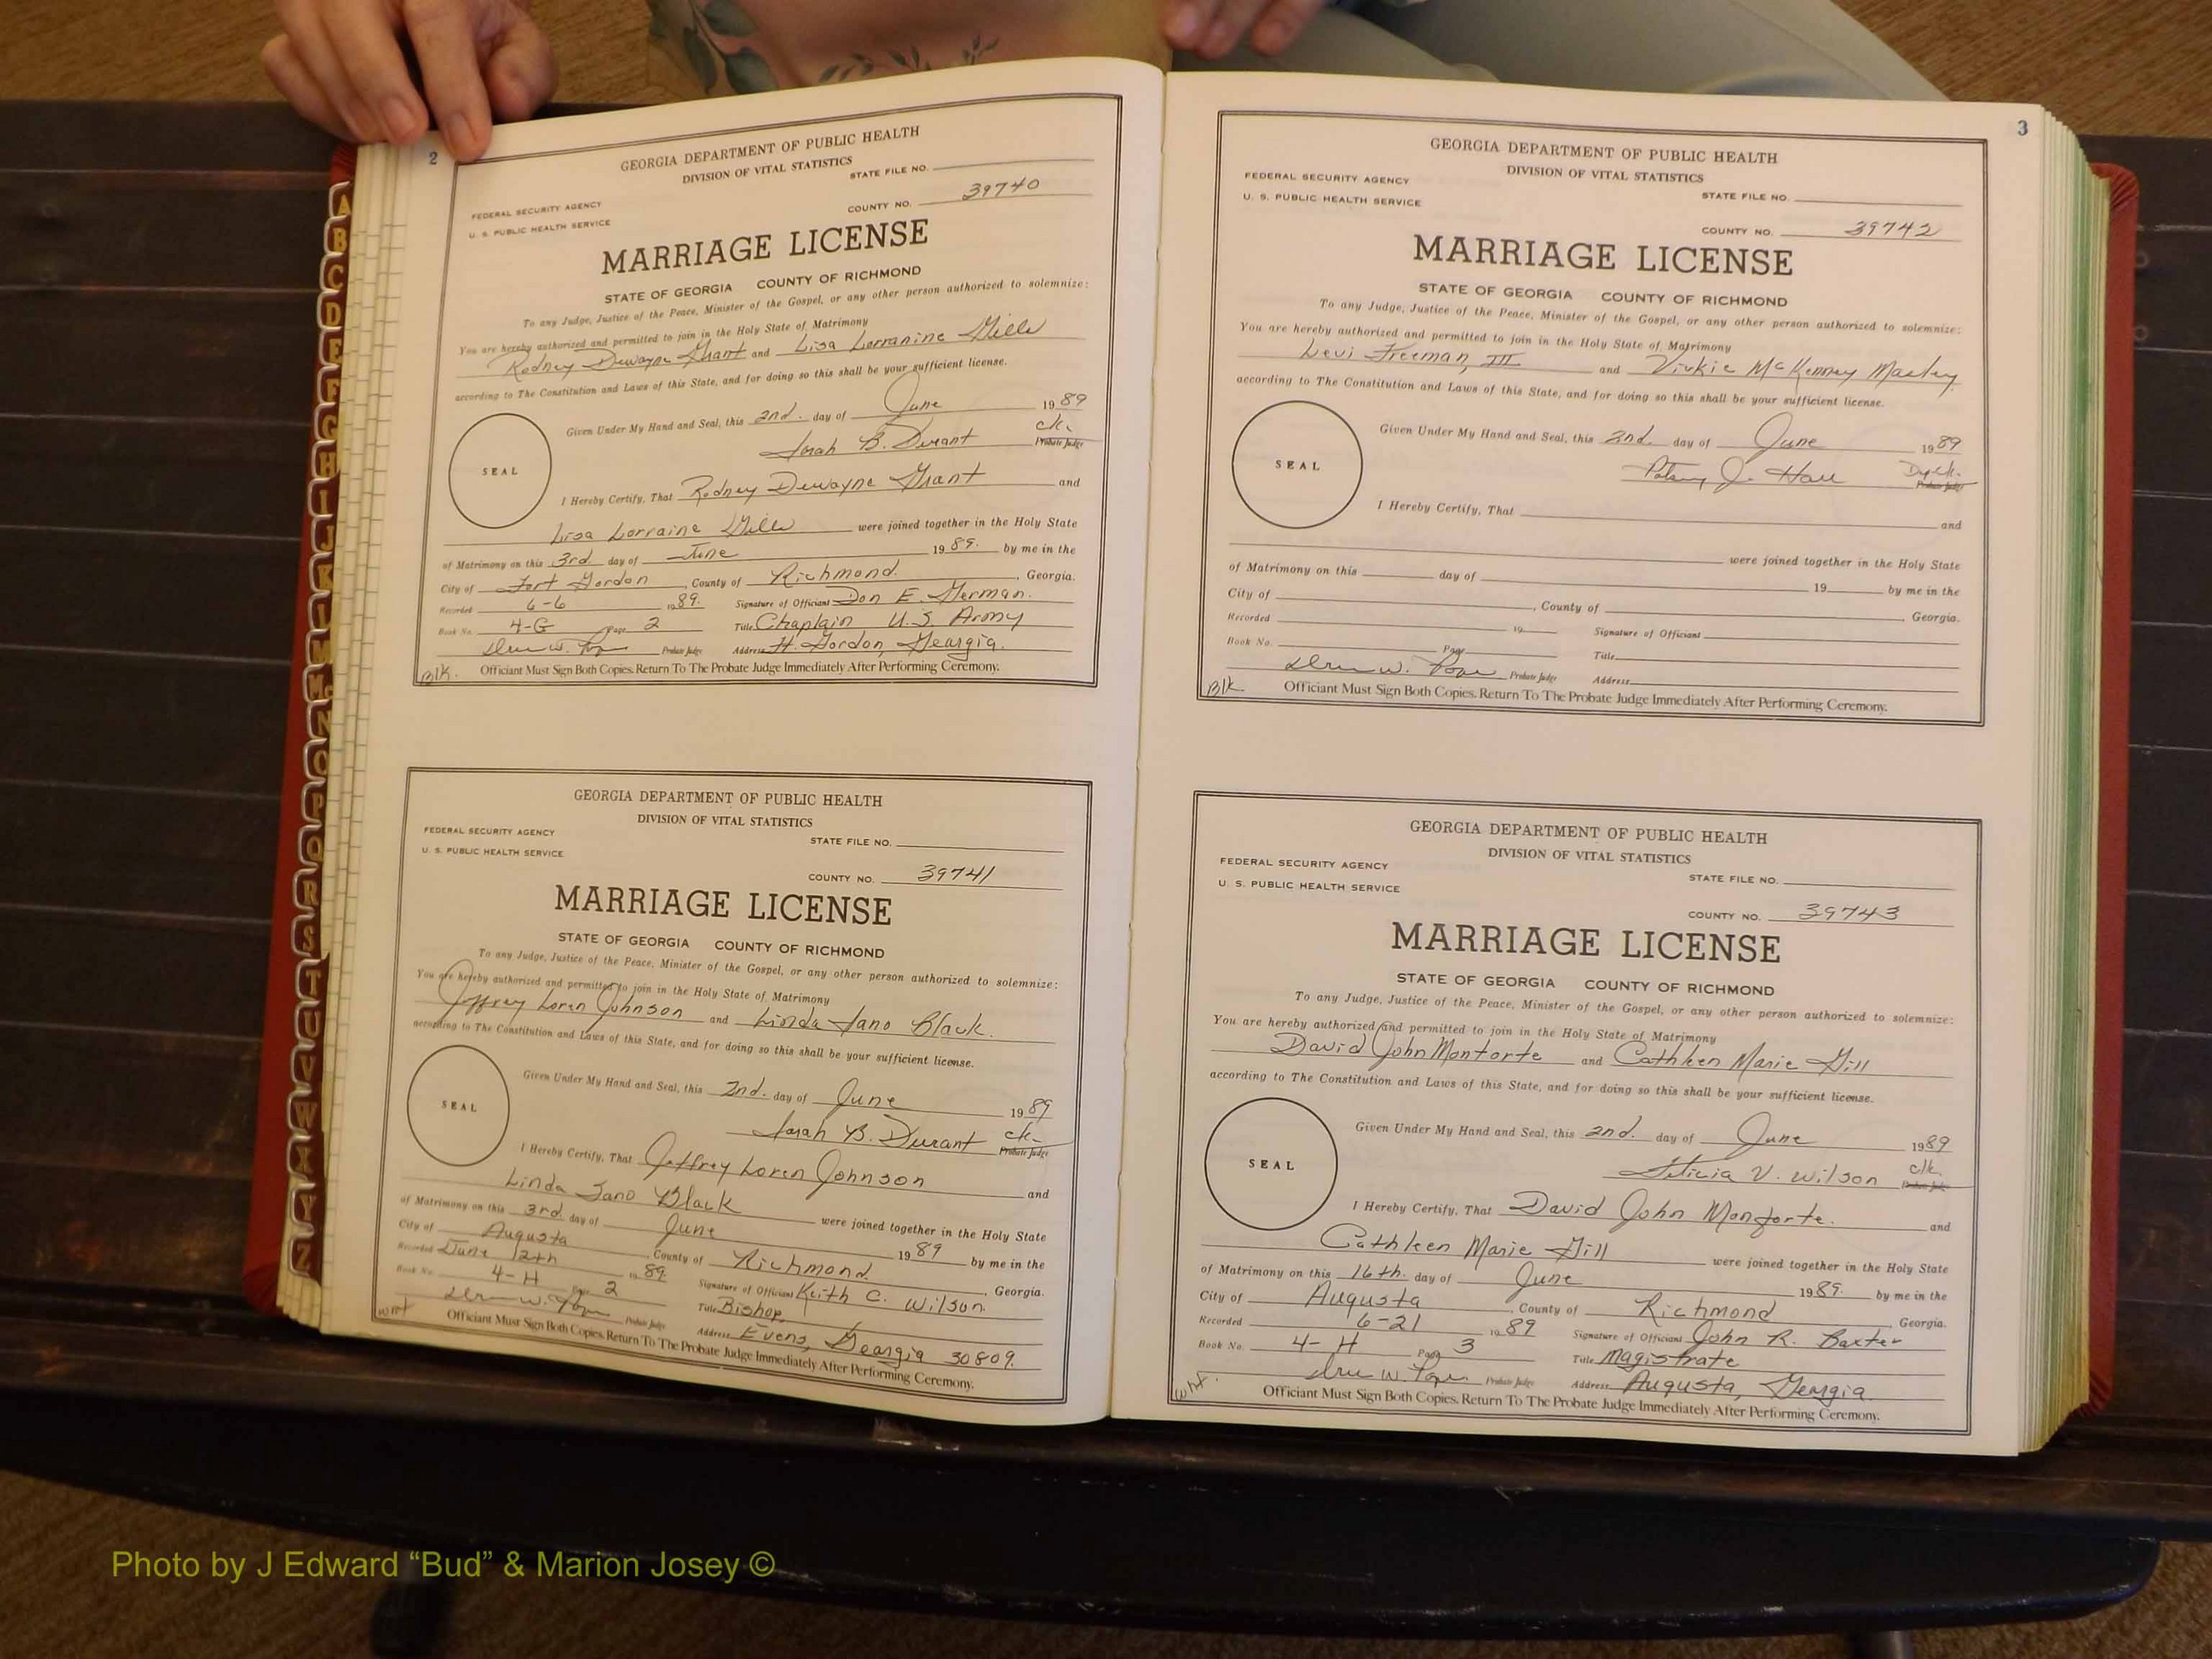 A
B
C
D
E
F
G
H
I
J
K
L
M
Mc
N
O
P
Q
R
S
T
U
V
W
X
Y
Z
2
GEORGIA DEPARTMENT OF PUBLIC HEALTH
DIVISION OF VITAL STATISTICS
STATE FILE NO.
FEDERAL SECURITY AGENCY
U. S. PUBLIC HEALTH SERVICE
COUNTY NO. 39740
MARRIAGE LICENSE
STATE OF GEORGIA COUNTY OF RICHMOND
To any Judge, Justice of the Peace, Minister of the Gospel, or any other person authorized to solemnize:
You are hereby authorized and permitted to join in the Holy State of Matrimony
Rodney Dewayne Grant and Lisa Lorranine
according to The Constitution and Laws of this State, and for doing so this shall be your sufficient license.
Given Under My Hand and Seal, this 2nd. day of June 1989
Sarah B. Durant clk. Probate Judge
SEAL
I Hereby Certify, That Rodney Dewayne Grant and
Lisa Lorraine were joined together in the Holy State
of Matrimony on this 3rd. day of June 1989. by me in the
City of Fort Gordon, County of Richmond. Georgia.
Recorded 6-6 1989. Signature of Officiant Don E. German.
Book No. 4-G Page 2 Title Chaplain U.S. Army
Probate Judge Address Ft. Gordon, Georgia.
Blk. Officiant Must Sign Both Copies. Return To The Probate Judge Immediately After Performing Ceremony.
GEORGIA DEPARTMENT OF PUBLIC HEALTH
DIVISION OF VITAL STATISTICS
FEDERAL SECURITY AGENCY
STATE FILE NO.
U. S. PUBLIC HEALTH SERVICE
COUNTY NO. 39741
MARRIAGE LICENSE
STATE OF GEORGIA COUNTY OF RICHMOND
To any Judge, Justice of the Peace, Minister of the Gospel, or any other person authorized to solemnize:
You are hereby authorized and permitted to join in the Holy State of Matrimony
Jeffrey Loren Johnson and Linda Jano Black.
according to The Constitution and Laws of this State, and for doing so this shall be your sufficient license.
Given Under My Hand and Seal, this 2nd. day of June 1989
Sarah B. Durant clk. Probate Judge
SEAL
I Hereby Certify, That Jeffrey Loren Johnson and
Linda Jano Black were joined together in the Holy State
of Matrimony on this 3rd. day of June 1989 by me in the
City of Augusta, County of Richmond. Georgia.
Recorded June 12th 1989. Signature of Officiant Keith C. Wilson.
Book No. 4-H Page 2 Title Bishop
Probate Judge Address Evens, Georgia 30809.
Wht Officiant Must Sign Both Copies. Return To The Probate Judge Immediately After Performing Ceremony.
3
GEORGIA DEPARTMENT OF PUBLIC HEALTH
DIVISION OF VITAL STATISTICS
FEDERAL SECURITY AGENCY
STATE FILE NO.
U. S. PUBLIC HEALTH SERVICE
COUNTY NO. 39742
MARRIAGE LICENSE
STATE OF GEORGIA COUNTY OF RICHMOND
To any Judge, Justice of the Peace, Minister of the Gospel, or any other person authorized to solemnize:
You are hereby authorized and permitted to join in the Holy State of Matrimony
Levi Freeman, III and Vickie McKenney
according to The Constitution and Laws of this State, and for doing so this shall be your sufficient license.
Given Under My Hand and Seal, this 2nd. day of June 1989
Patsy J. Hall Dep. clk. Probate Judge
SEAL
I Hereby Certify, That and
were joined together in the Holy State
of Matrimony on this day of 19 by me in the
City of , County of Georgia.
Recorded 19 Signature of Officiant
Book No. Page Title
Probate Judge Address
Blk. Officiant Must Sign Both Copies. Return To The Probate Judge Immediately After Performing Ceremony.
GEORGIA DEPARTMENT OF PUBLIC HEALTH
DIVISION OF VITAL STATISTICS
FEDERAL SECURITY AGENCY
STATE FILE NO.
U. S. PUBLIC HEALTH SERVICE
COUNTY NO. 39743
MARRIAGE LICENSE
STATE OF GEORGIA COUNTY OF RICHMOND
To any Judge, Justice of the Peace, Minister of the Gospel, or any other person authorized to solemnize:
You are hereby authorized and permitted to join in the Holy State of Matrimony
David John Monforte and Cathleen Marie Gill
according to The Constitution and Laws of this State, and for doing so this shall be your sufficient license.
Given Under My Hand and Seal, this 2nd. day of June 1989
Leticia V. Wilson clk. Probate Judge
SEAL
I Hereby Certify, That David John Monforte. and
Cathleen Marie Gill were joined together in the Holy State
of Matrimony on this 16th. day of June 1989. by me in the
City of Augusta, County of Richmond Georgia.
Recorded 6-21 1989 Signature of Officiant John R. Baxter
Book No. 4-H Page 3 Title Magistrate
Probate Judge Address Augusta, Georgia.
Wht. Officiant Must Sign Both Copies. Return To The Probate Judge Immediately After Performing Ceremony.
Photo by J Edward “Bud” & Marion Josey ©